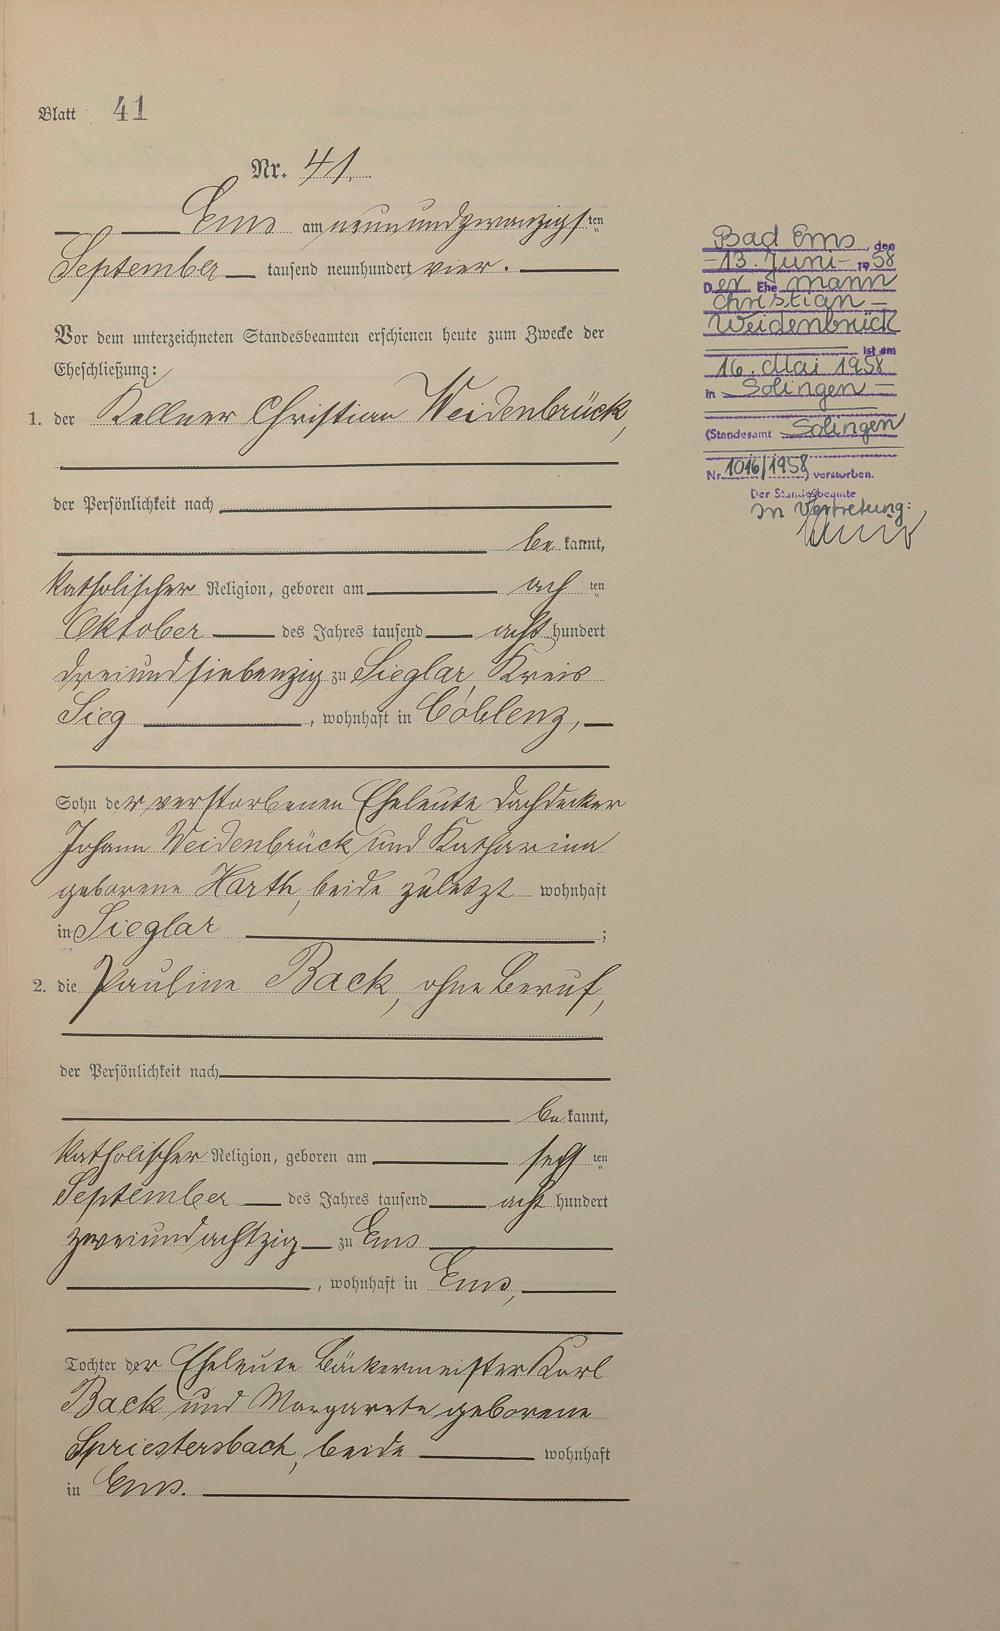 Blatt 41
Nr. 41.
Ems am neunundzwanzigsten
September tausend neunhundert vier.
Vor dem unterzeichneten Standesbeamten erschienen heute zum Zwecke der
Eheschließung:
1. der Kellner Christian Weidenbrück,
der Persönlichkeit nach
be kannt,
katholischer Religion, geboren am achten
Oktober des Jahres tausend acht hundert
dreiundsiebenzig zu Sieglar Kreis
Sieg, wohnhaft in Coblenz,
Sohn der verstorbenen Eheleute Dachdecker
Johann Weidenbrück und Katharina
geborene Harth, beide zuletzt wohnhaft
in Sieglar;
2. die Pauline Back, ohne Beruf,
der Persönlichkeit nach
be kannt,
katholischer Religion, geboren am sechsten
September des Jahres tausend acht hundert
zweiundachtzig zu Ems
, wohnhaft in Ems,
Tochter der Eheleute Bäckermeister Karl
Back und Margarete geborene
Spriestersbach, beide wohnhaft
in Ems.
Bad Ems, den
-13. Juni- 1958
Der Ehemann
Christian -
Weidenbrück
ist am
16. Mai 1958
in Solingen -
(Standesamt Solingen
Nr. 1016/1958) verstorben.
Der Standesbeamte
In Vertretung: